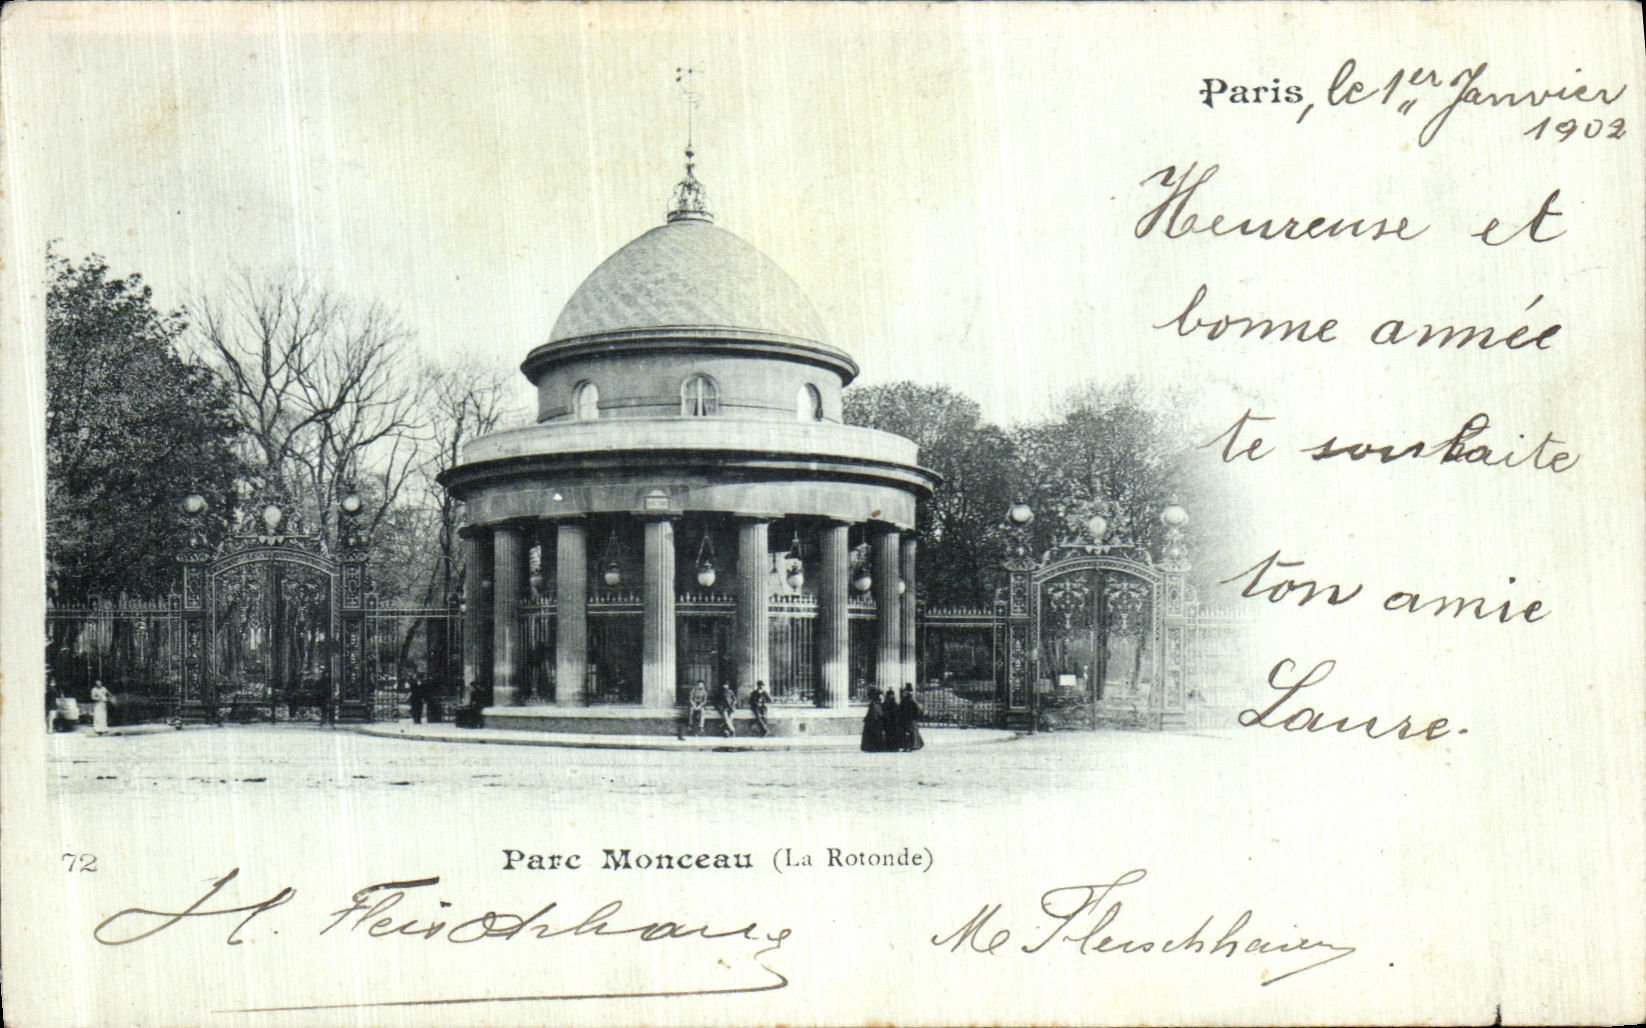 Paris, le 1er Janvier
1902
Heureuse et
bonne année
te souhaite
ton amie
Laure.
72
Parc Monceau (La Rotonde)
H. Fleischhauer
M Fleischhauer